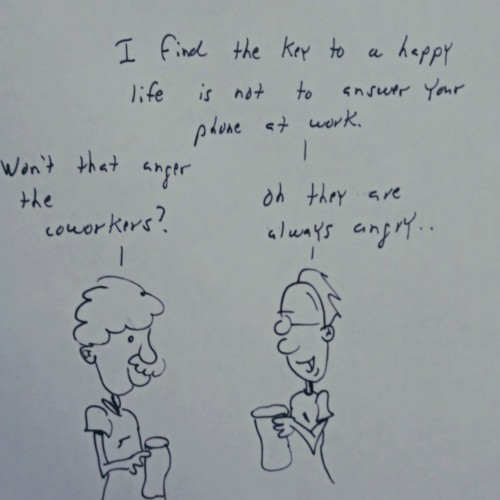 I find the key to a happy
life is not to answer your
phone at work.
Won't that anger
the
coworkers?
Oh they are
always angry..